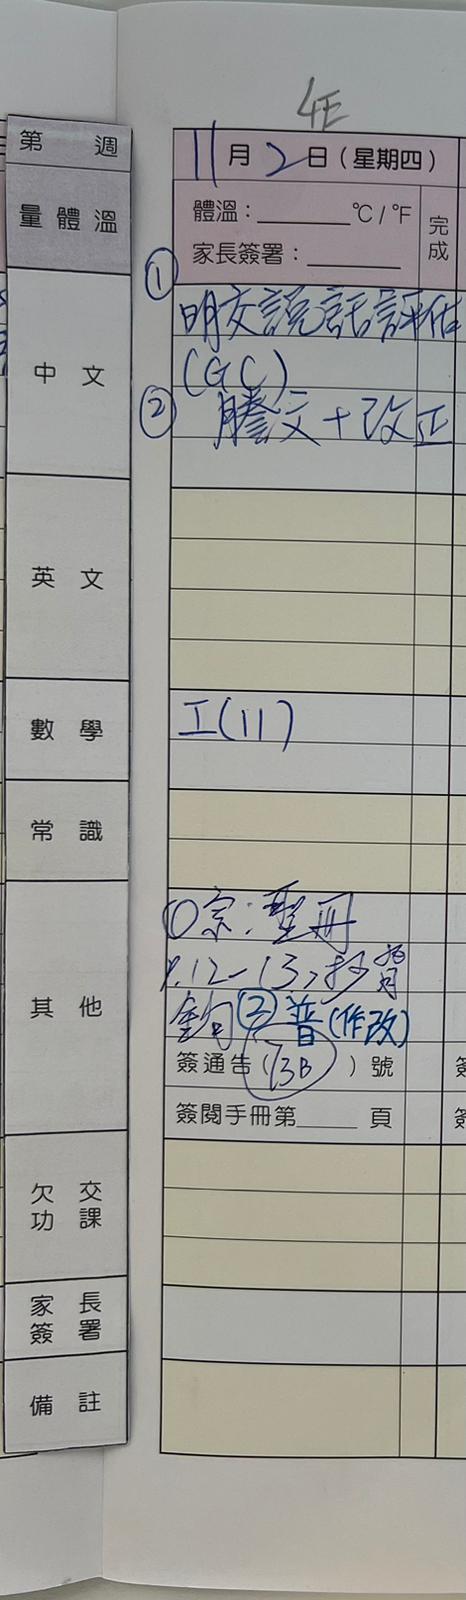 4E
第 週
11月2日(星期四)
量體溫
體溫：______°C/°F
家長簽署：______
完成
中文
① 明交説話評估
(GC)
② 謄文+改正
英文
數學
工(11)
常識
其他
①宗:聖冊
P.12-13,抄背
金句②普(作改)
簽通告(13B)號
簽閱手冊第____頁
欠交功課
家長簽署
備註